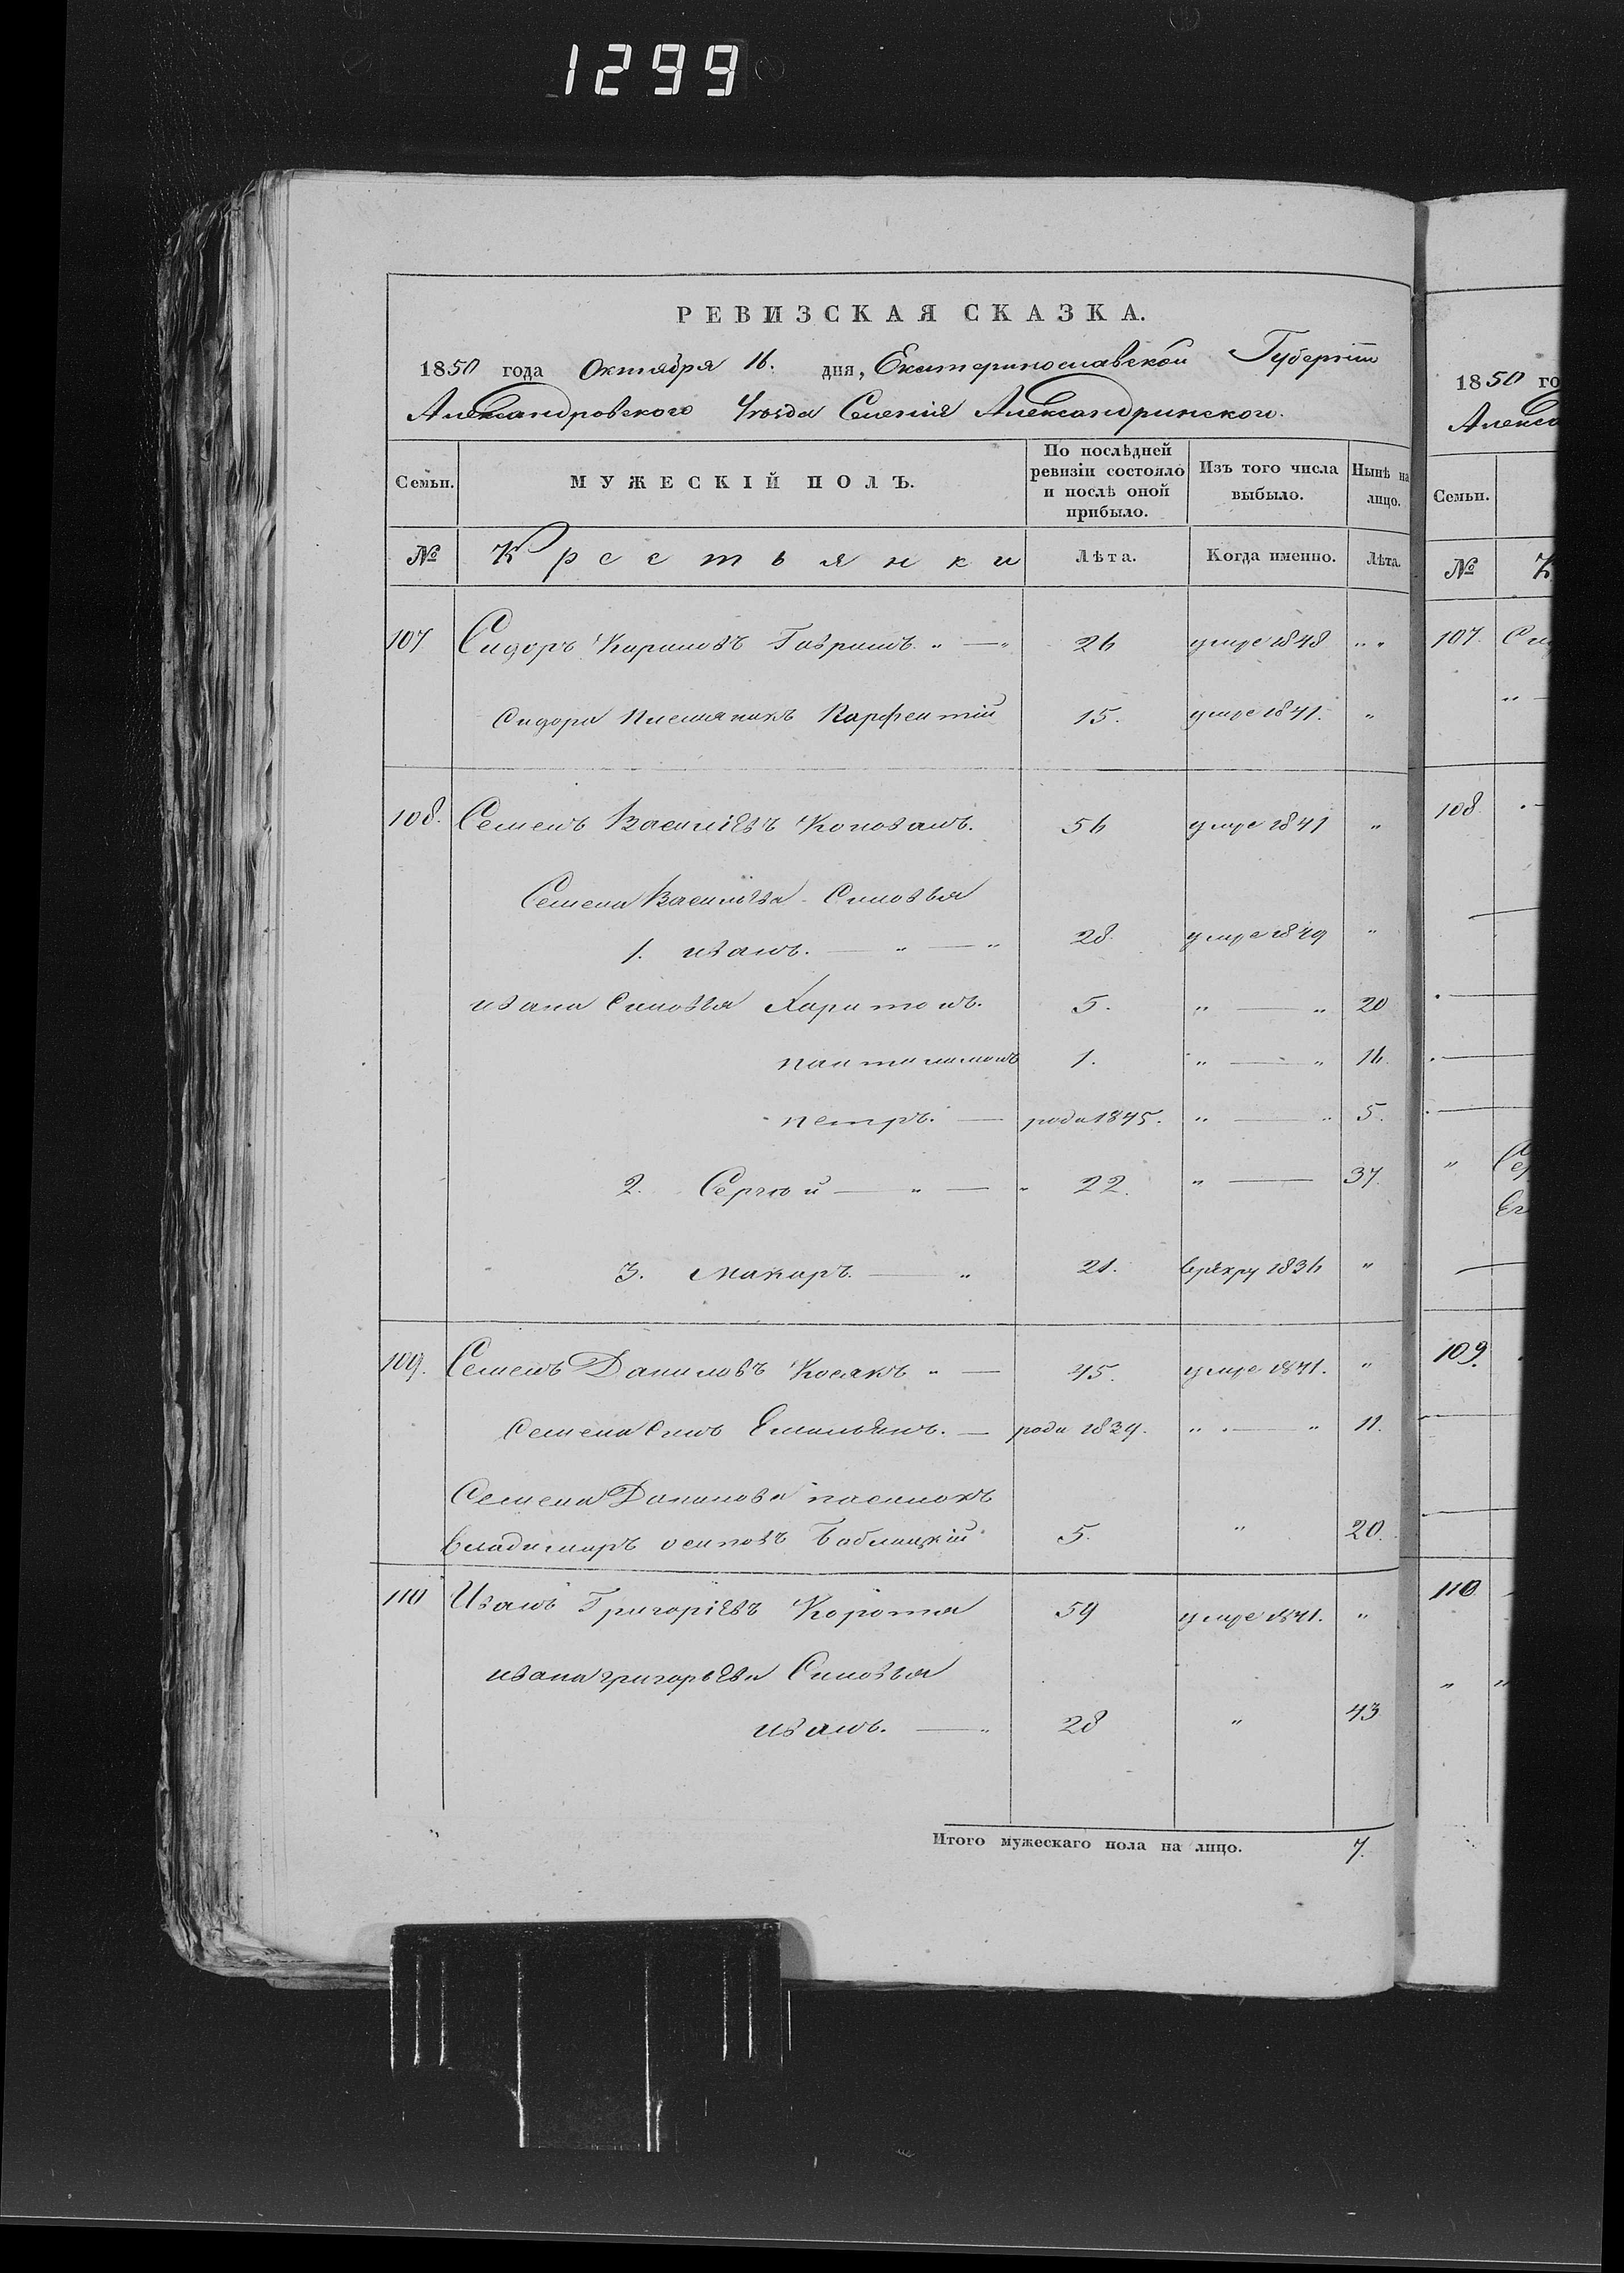 1299
РЕВИЗСКАЯ СКАЗКА.
1850 года Октября 16. дня, Екатеринославской Губерніи
Александровского Уѣзда Селенія Александринского.
Семьи. МУЖЕСКІЙ ПОЛЪ. По послѣдней ревизіи состояло и послѣ оной прибыло. Изъ того числа выбыло. Нынѣ на лицо.
№ Крестьянки Лѣта. Когда именно. Лѣта.
107 Сидоръ Карповъ Гавришъ 26 умре 1848 " "
Сидора племяникъ Парфентій 15. умре 1841. "
108. Семенъ Василіевъ Коновалъ. 56 умре 1841 "
Семена Васильева Синовья
1. иванъ. — " — " 28. умре 1849 "
ивана Синовья Харитонъ. 5. " — " 20
пантилимонъ 1. " — " 16.
петръ. — роди 1845. " — " 5.
2. Сергѣй — " — " 22. " — 37.
3. Макаръ. — " 21. в рекру 1836 "
109. Семенъ Даниловъ Косякъ " — 45. умре 1841. "
Семена Синъ Емельянъ. — роди 1839. " — " 11.
Семена Данилова пасинокъ
Владимиръ осиповъ 5. " 20.
110 Иванъ Григоріевъ Коротя 59 умре 1841. "
ивана григорьева Синовья
иванъ. — " 28 " 43
Итого мужескаго пола на лицо. 7.
1850 го
Алекса
Семьи.
№ К
107. Си
108.
109.
110